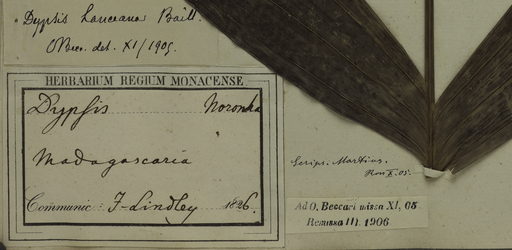 Dypsis Lanceana Baill.
OBecc. det. XI/1905.
HERBARIUM REGIUM MONACENSE
Dypsis Noronha
Madagascaria
Communic: J-Lindley 1826.
Scrips. Martius.
Ad O. Beccari missa XI, 05
Remissa III. 1906